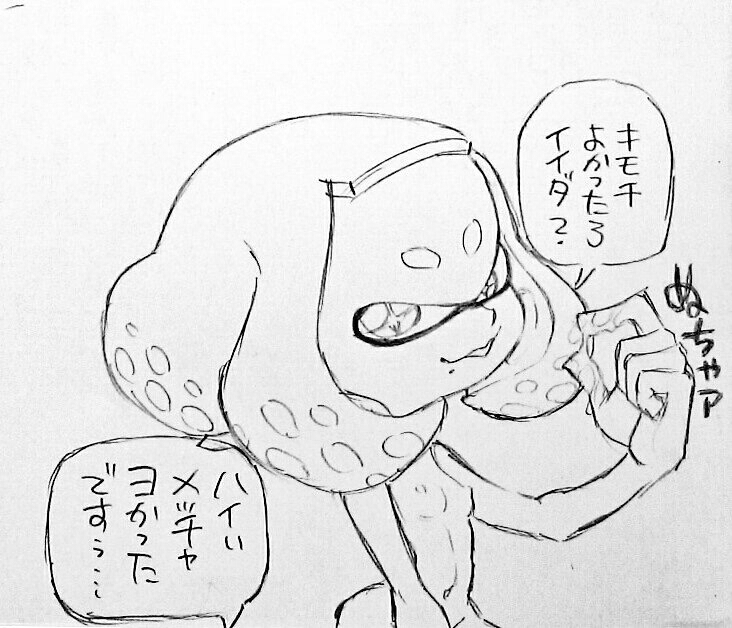 キモチ
よかったろ
イイダ?
ぬちゃァ
ハイぃ
メッチャ
ヨかった
ですぅ…